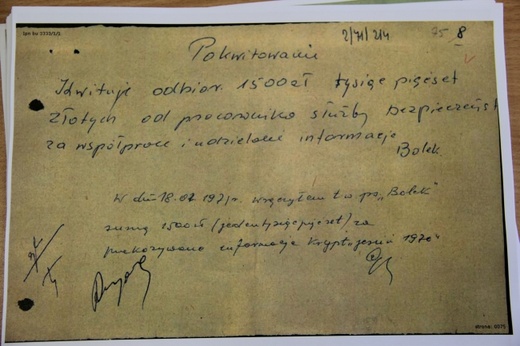 2/71/214 75 8
Pokwitowanie
Kwituję odbiór 1500 zł tysiąc pięćset
złotych od pracownika służby bezpieczeńst
za współpracę i udzielone informacje
Bolek
W dniu 18.01.1971r. wręczyłem tw ps „Bolek"
sumę 1500 zł (jeden tysiąc pięćset) za
przekazywane informacje 1970"
strona: 0075